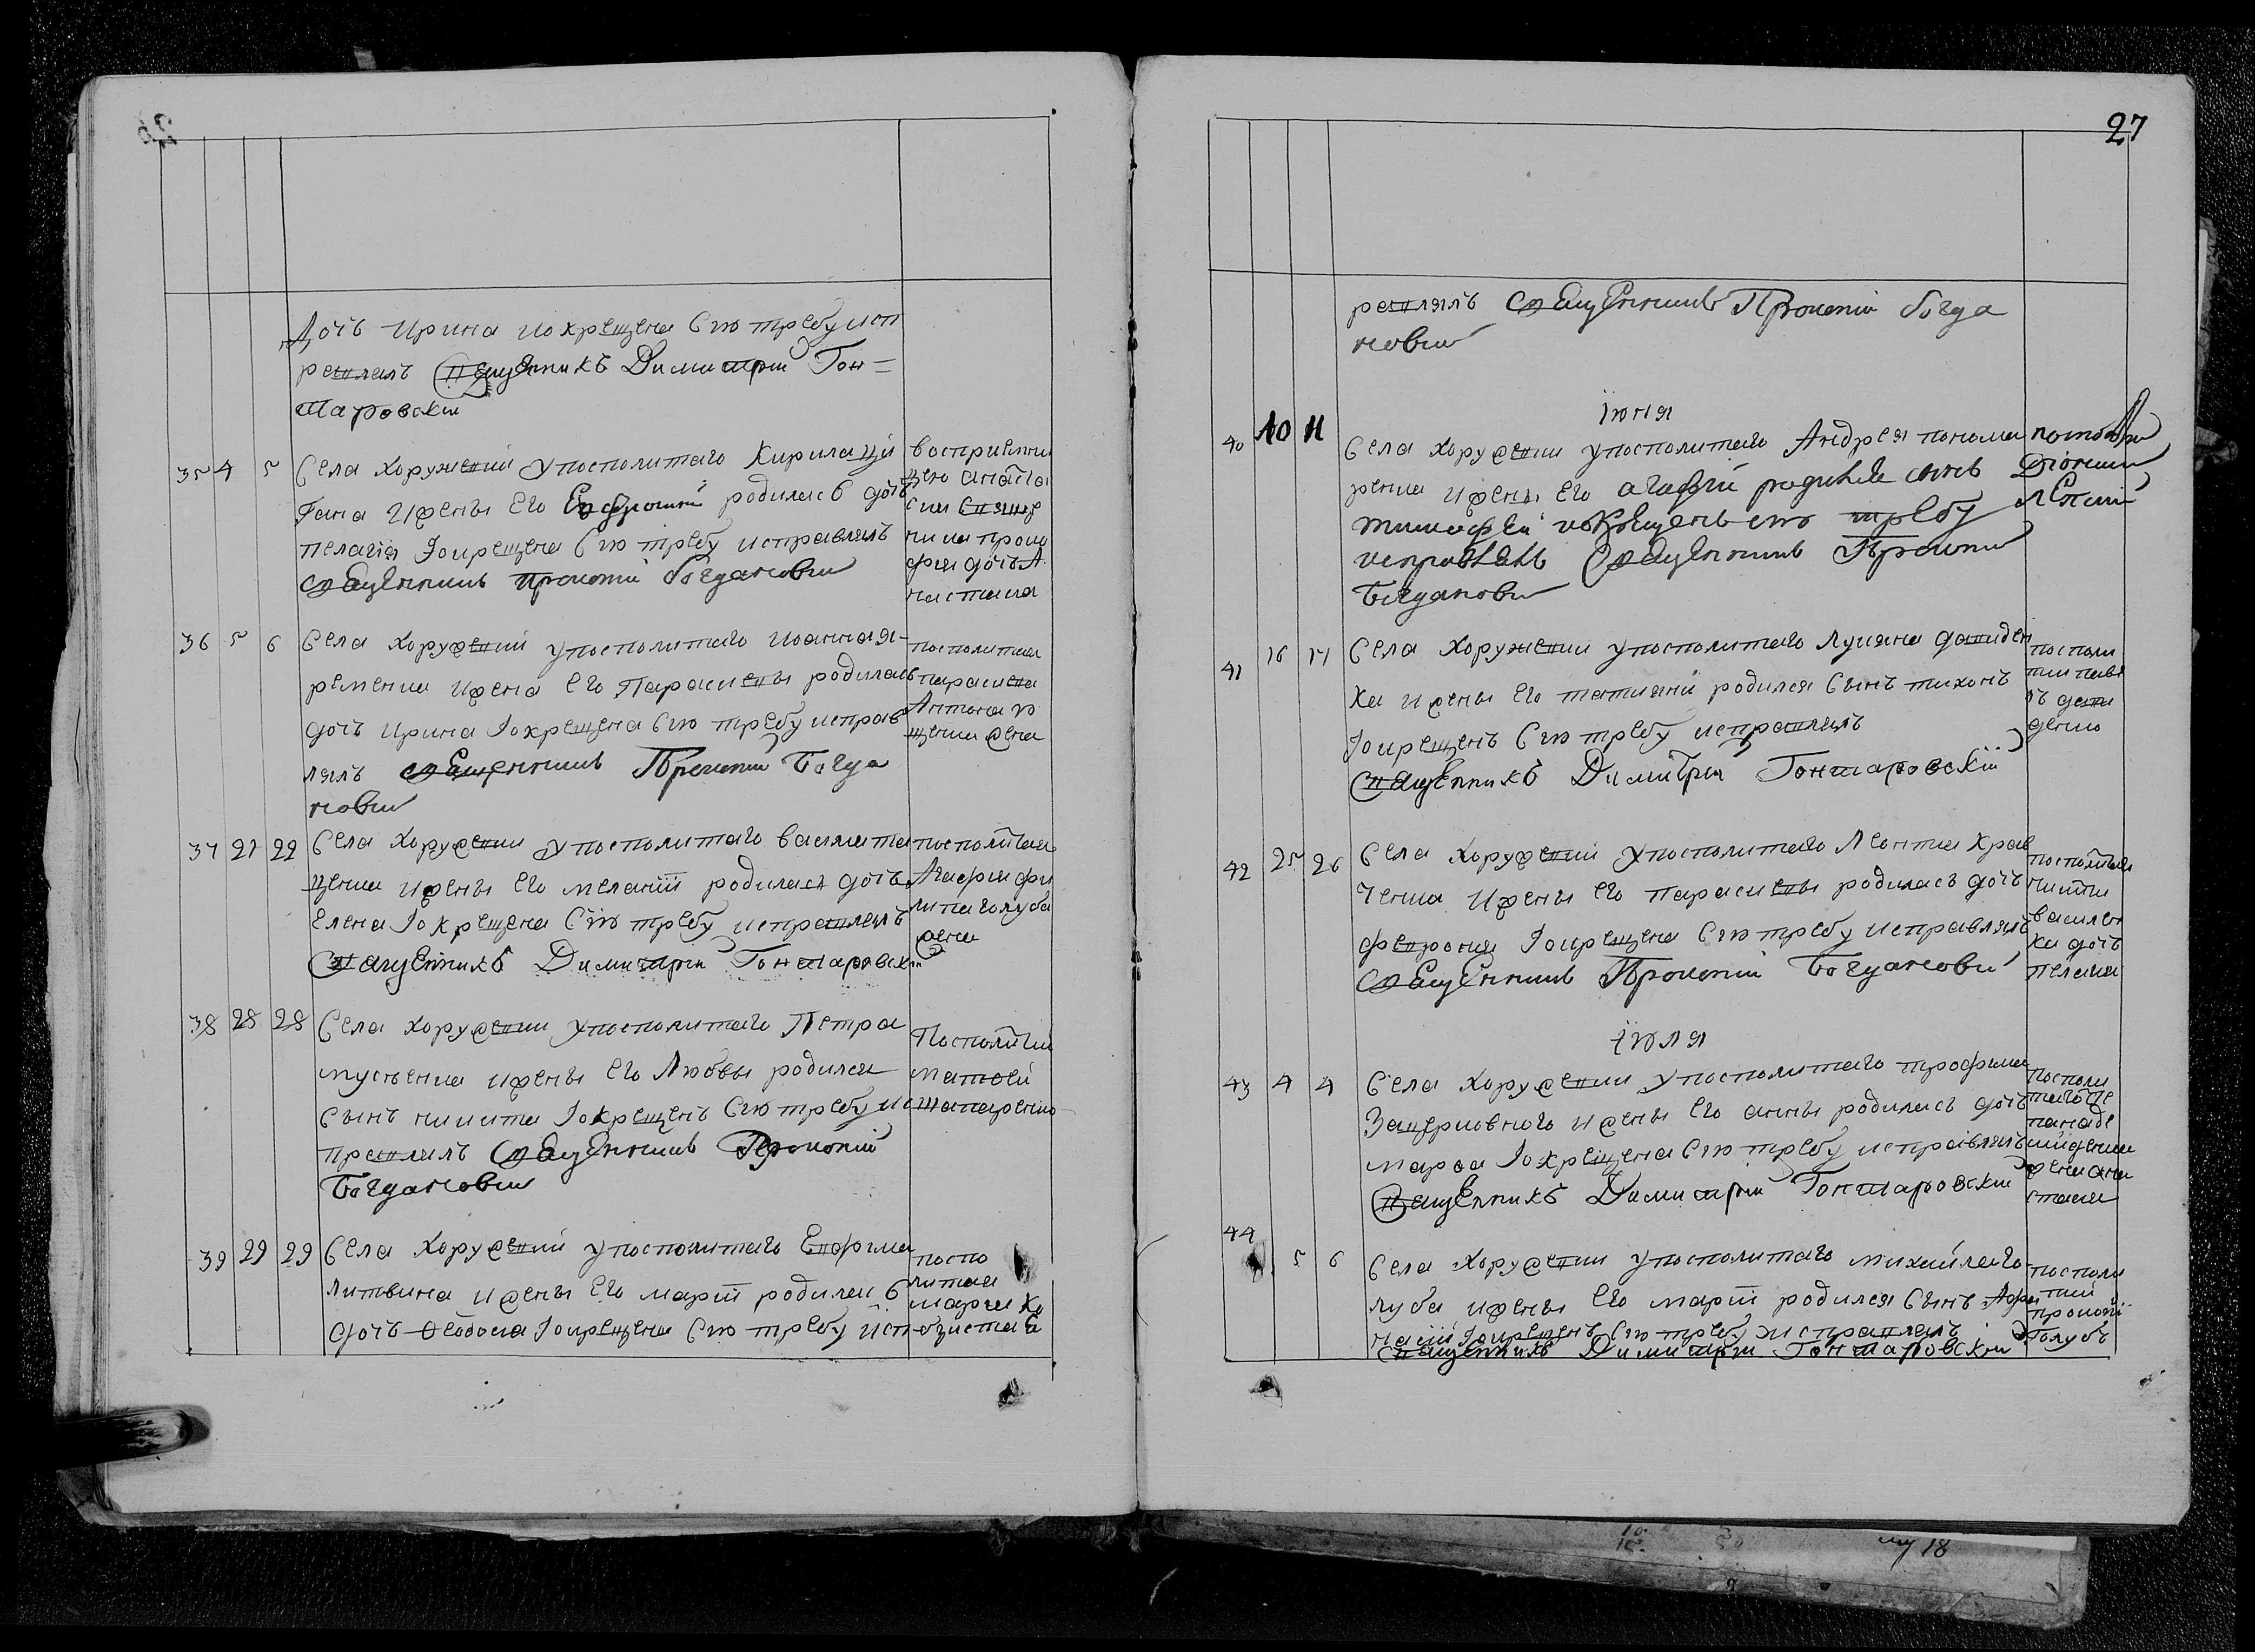 27
Дочь Ирина искрещена Сию требу исп
равлялъ Священникъ Димитрій Гон=
таровскій
35 4 5 Села Хоружевки у посполитаго Кирила Ци
гана и жены его Евфросиніи родилась дочь
Пелагія и окрещена Сию требу исправлялъ
священникъ Прокопій Богдановій
восприемни
цею
дочь А
настасия
36 5 6 Села Хоружевки у посполитаго Иоанна Я-
ременка и жена его Парасковы родилась
дочь Ирина и окрещена Сию требу исправ
лялъ священникъ Прокопій Богда
новій
посполитая
параскева
Антона
жена
37 21 22 Села Хоружевки у посполитаго Василия
щенка и жены его Меланіи родилась дочь
Елена и окрещена Сию требу исправлялъ
Священникъ Димитрій Гонтаровскій
посполитая
Агафия фи
липа голуба
жена
38 28 28 Села Хоружевки у посполитаго Петра
Мусиенка и жены его Любовы родился
Сынъ Никита и окрещенъ Сию требу ис
правлялъ священникъ Прокопій
Богдановій
Посполитій
Матвей
Шапаренко
39 29 29 Села Хоружевки у посполитаго Евфима
Литвина и жены его Марѳи родилась
дочь Ѳеодосия и окрещена Сию требу исп
поспо
литая
Мария Ко
бзиста
равлялъ священникъ Прокопій Богда
новій
Іюня
40 10 11 Села Хоружевки у посполитаго Андрея Понома
ренка и жены его Агафіи родился сынъ
Тимофей и окрещенъ сию требу
исправлялъ Священникъ Прокопій
Богдановій
41 16 17 Села Хоружевки у посполитаго Лукяна Давиден
ка и жены его Татияны родился Сынъ Тихонъ
и окрещенъ Сию требу исправлялъ
Священникъ Димитрій Гонтаровскій
посполи
тий Павл
ъ Дави
денко
42 25 26 Села Хоружевки у посполитаго Леонтия Крав
ченка и жены его Парасковы родилась дочь
Феврония и окрещена Сию требу исправлялъ
священникъ Прокопій Богдановій
посполитая
Никити
Василен
ка дочь
Пелагия
Іюля
43 4 4 Села Хоружевки у посполитаго Трофима
и жены его Анны родилась дочь
Марѳа и окрещена Сию требу исправлялъ
Священникъ Димитрій Гонтаровскій
посполи
таго
жена Ана
стасия
44 5 6 Села Хоружевки у посполитаго Михайла Го
луба и жены его Марѳи родился Сынъ Афа
насій и окрещенъ Сию требу исправлялъ
Священникъ Димитрій Гонтаровскій
посполи
тий
Прокопій
Голубъ